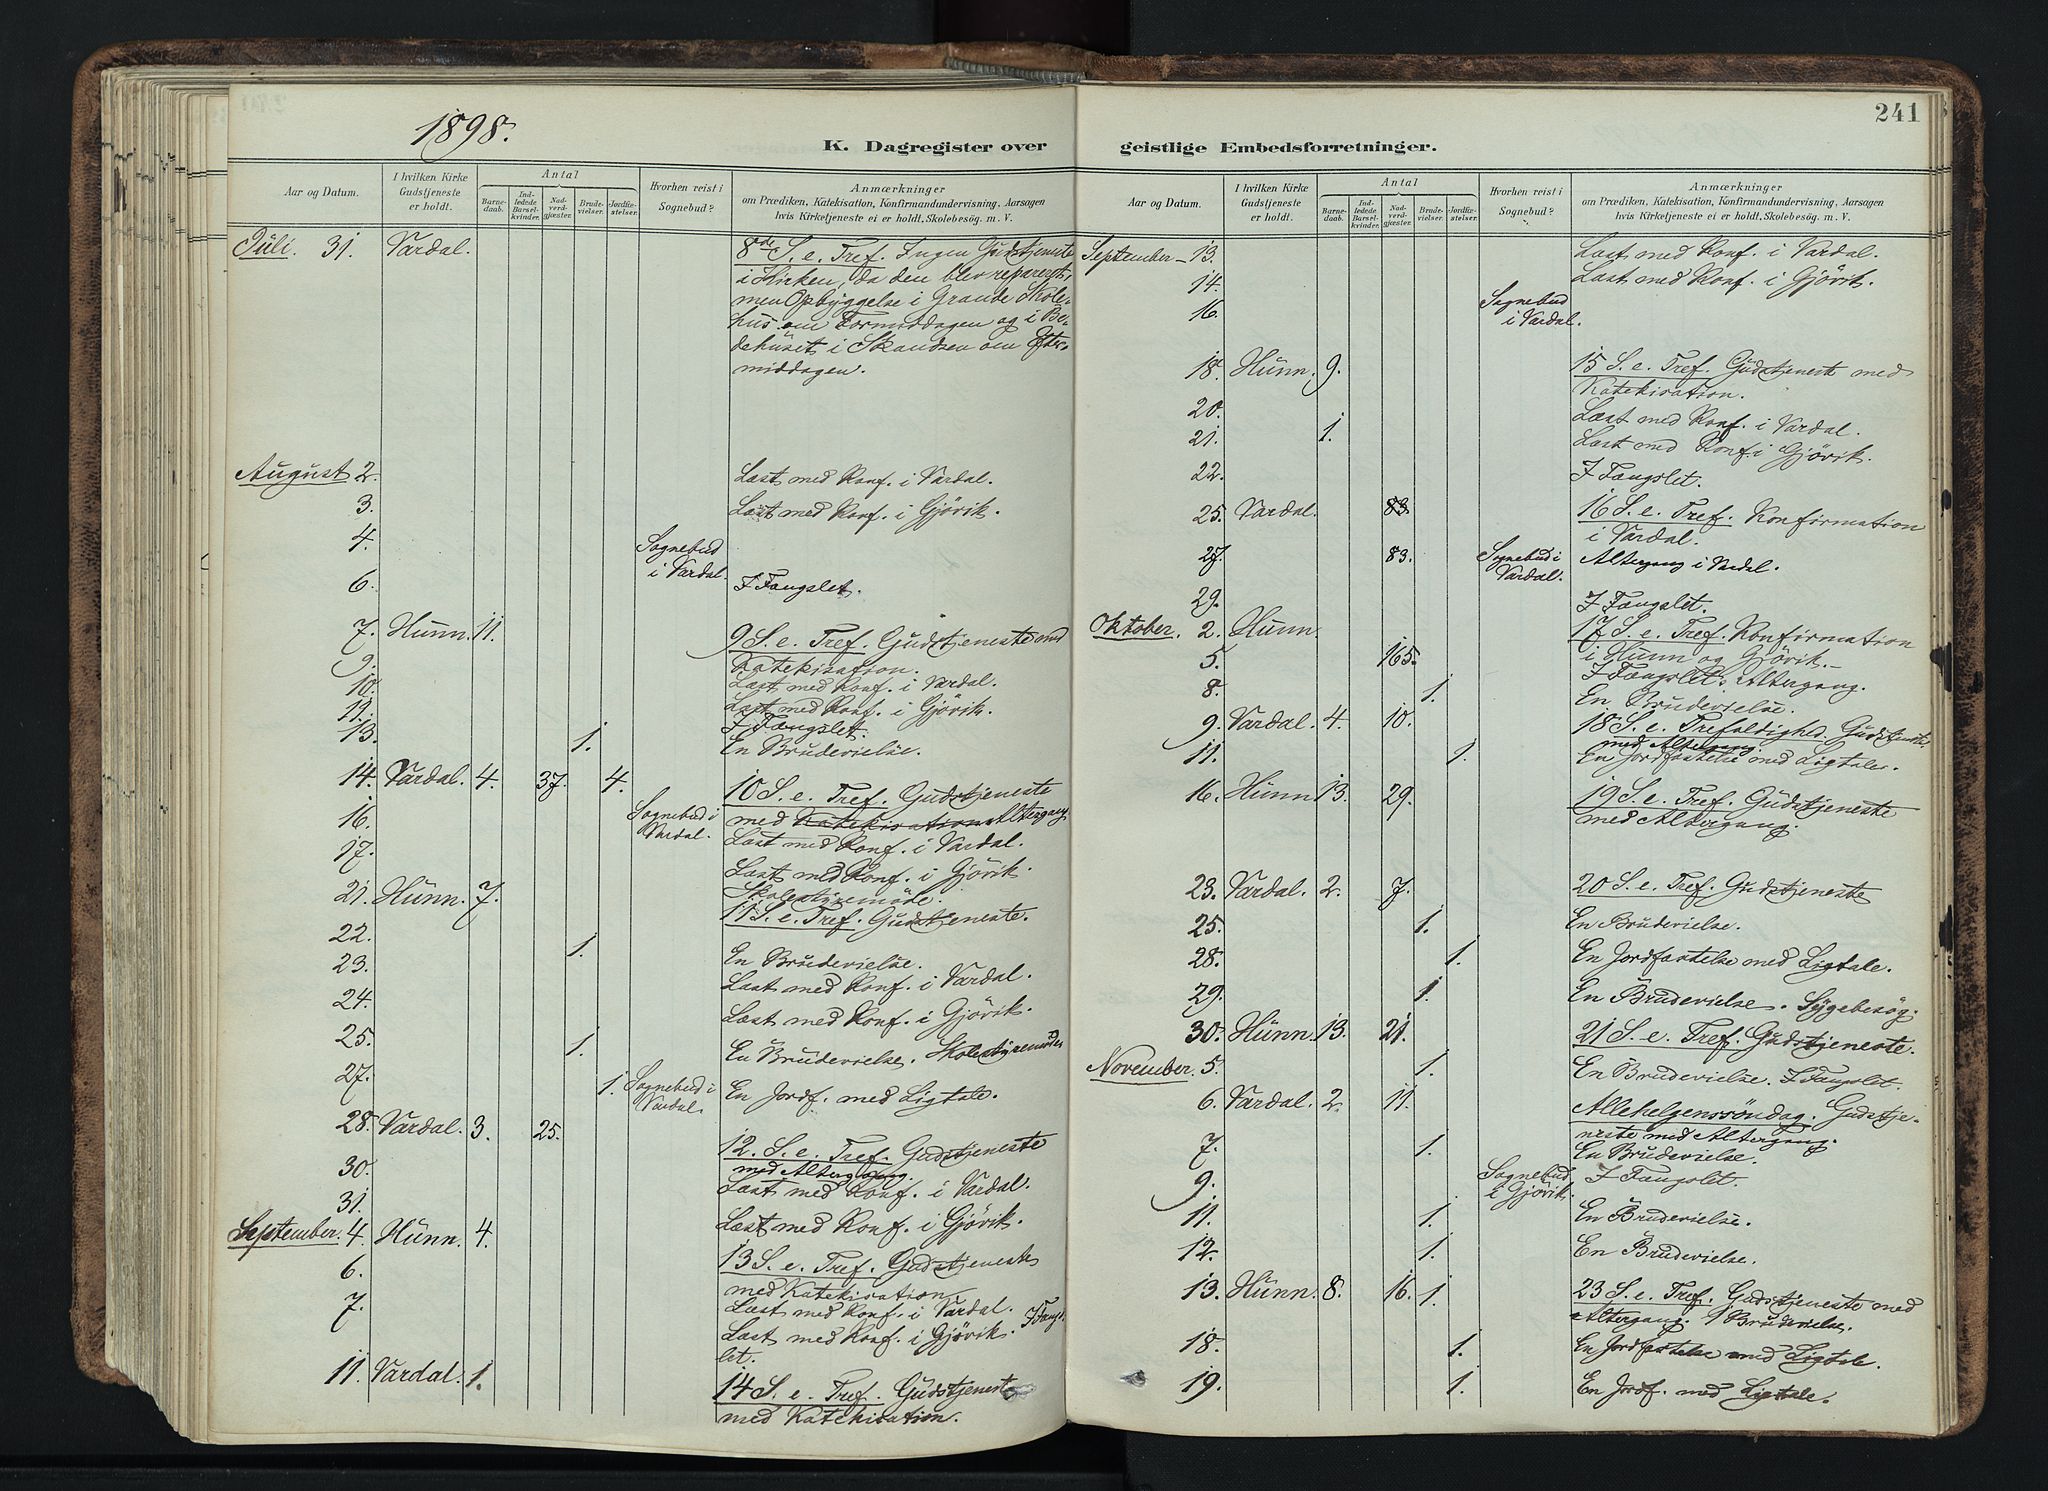 1898.
K. Dagregister over
Aar og Datum.
I hvilken Kirke
Gudstjeneste
er holdt.
Antal
Barne-
daab.
Ind-
ledede
Barsel-
kvinder.
Nad-
verd-
gjæster.
Brude-
vielser.
Jordfæ-
stelser.
Hvorhen reist i
Sognebud?
Anmærkninger
om Prædiken, Katekisation, Konfirmandundervisning, Aarsagen
hvis Kirketjeneste ei er holdt, Skolebesøg. m. V.
Juli. 31. Vardal. 8de S. e. Tref. Ingen Gudstjeneste
i Kirken, da den blev repareret,
men Opbyggelse i Grande Skole-
hus om Formiddagen og i Be-
dehuset i Skandsen om Efter-
middagen.
August 2. Læst med Konf. i Vardal.
3. Læst med Konf. i Gjövik.
4. Sognebud
i Vardal.
6. I Fængslet.
7. Hunn. 11. 9 S. e. Tref. Gudstjeneste med
Katekisation.
9. Læst med Konf. i Vardal.
10. Læst med Konf. i Gjövik.
11. I Fængslet.
13. 1. En Brudevielse.
14. Vardal. 4. 37. 4. 10 S. e. Tref. Gudstjeneste
med Katekisation Altergang
16. Sognebud i
Vardal. Læst med Konf. i Vardal.
17. Læst med Konf. i Gjövik.
Skolestyremöde.
21. Hunn. 7. 11 S. e. Tref. Gudstjeneste.
22. 1. En Brudevielse.
23. Læst med Konf. i Vardal.
24. Læst med Konf. i Gjövik.
25. 1. En Brudevielse. Skolestyremöde
27. 1. Sognebud i
Vardal. En Jordf. med Ligtale.
28. Vardal. 3. 25. 12. S. e. Tref. Gudstjeneste
med Altergang.
30. Læst med Konf. i Vardal.
31. Læst med Konf. i Gjövik.
September. 4. Hunn. 4. 13 S. e. Tref. Gudstjeneste
med Katekisation.
6. Læst med Konf. i Vardal.
7. Læst med Konf. i Gjövik. I Fængs-
let.
11. Vardal. 1. 14 S. e. Tref. Gudstjeneste
med Katekisation.
241
geistlige Embedsforretninger.
Aar og Datum.
I hvilken Kirke
Gudstjeneste
er holdt.
Antal
Barne-
daab.
Ind-
ledede
Barsel-
kvinder.
Nad-
verd-
gjæster.
Brude-
vielser.
Jordfæ-
stelser.
Hvorhen reist i
Sognebud?
Anmærkninger
om Prædiken, Katekisation, Konfirmandundervisning, Aarsagen
hvis Kirketjeneste ei er holdt, Skolebesøg. m. V.
September 13. Læst med Konf. i Vardal.
14. Læst med Konf. i Gjövik.
16. Sognebud
i Vardal.
18. Hunn. 9. 15 S. e. Tref. Gudstjeneste med
Katekisation.
20. Læst med Konf. i Vardal.
21. 1. Læst med Konf. i Gjövik.
22. I Fængslet.
25. Vardal. 83. 16 S. e. Tref. Konfirmation
i Vardal.
27. 83. Sognebud i
Vardal. Altergang i Vardal.
29. I Fængslet.
Oktober. 2. Hunn. 17 S. e. Tref. Konfirmation
i Hunn og Gjövik.
5. 165. I Fængslet. Altergang.
8. 1. En Brudevielse.
9. Vardal. 4. 10. 18 S. e. Trefoldighed. Gudstjeneste
med Altergang.
11. 1. En Jordfæstelse med Ligtale.
16. Hunn 13. 29. 19 S. e. Tref. Gudstjeneste
med Altergang.
23. Vardal. 2. 7. 20 S. e. Tref. Gudstjeneste
25. 1. En Brudevielse.
28. 1. En Jordfæstelse med Ligtale.
29. 1. En Brudevielse. Sygebesög.
30. Hunn. 13. 21. 21 S. e. Tref. Gudstjeneste.
November. 5. 1. En Brudevielse. I Fængslet.
6. Vardal. 2. 11. Allehelgenssöndag. Gudstje-
neste med Altergang.
7. 1. En Brudevielse.
9. Sognebud
i Gjövik. I Fængslet.
11. 1. En Brudevielse.
12. 1. En Brudevielse.
13. Hunn. 8. 16. 1. 23 S. e. Tref. Gudstjeneste med
Altergang. 1 Brudevielse.
18. 1. En Jordfæstelse med Ligtale.
19. 1. En Jordf. med Ligtale.